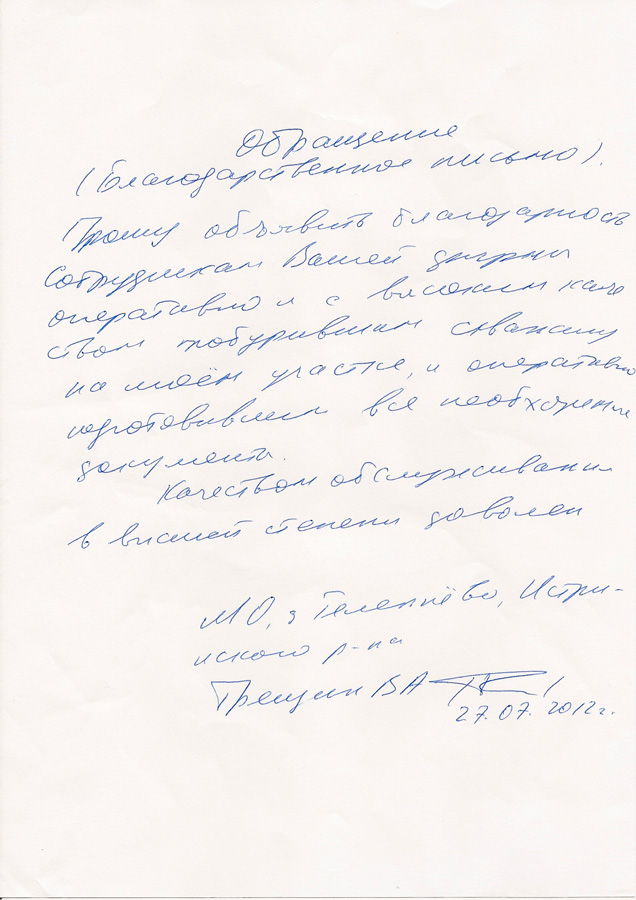 Обращение
(Благодарственное письмо).
Прошу объявить благодарность
Сотрудникам Вашей фирмы
оперативно и с высоким каче
ством побурившим скважину
на моём участке, и оперативно
подготовившем все необходимые
документы.
Качеством обслуживания
в высшей степени доволен
МО, д Телепнёво, Истри-
нского р-на
Трещин ВА
27.07.2012г.